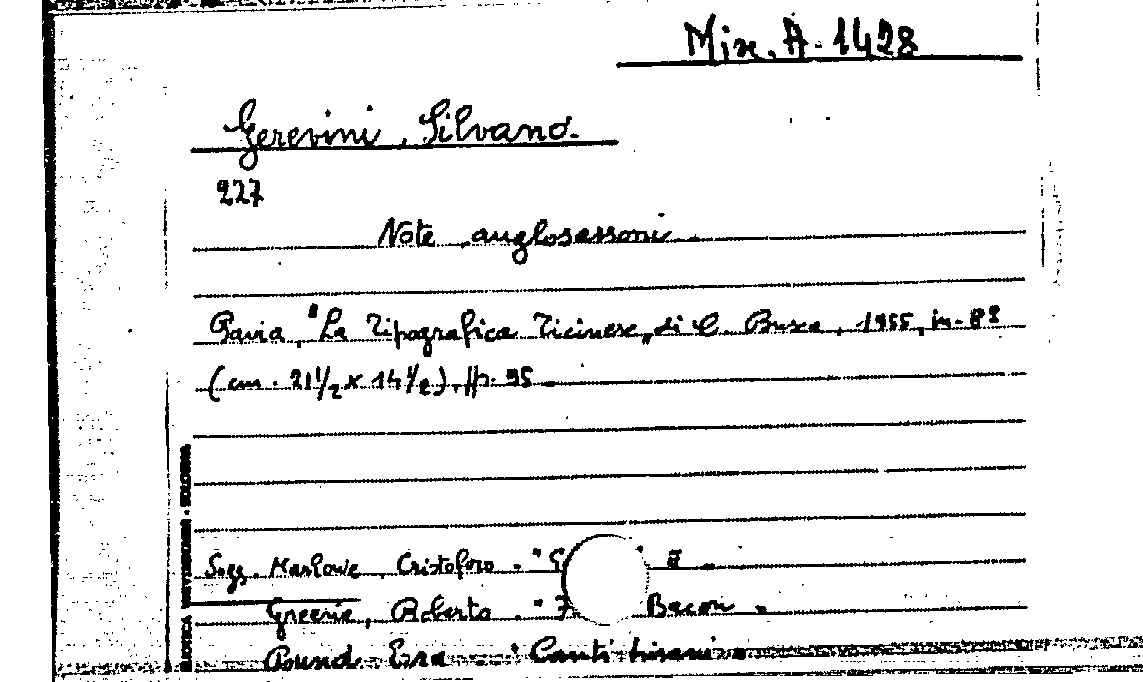 Misc. A. 1428
Gerevini, Silvano.
227
Note anglosassoni
Pavia, "La Tipografica Ticinese" di C. Busca, 1955, in-8º
(cm. 21½ x 14½), pp. 95
Sogg. Marlowe, Cristoforo. "
Greene, Roberto. " Bacon
Pound Ezra Canti pisani